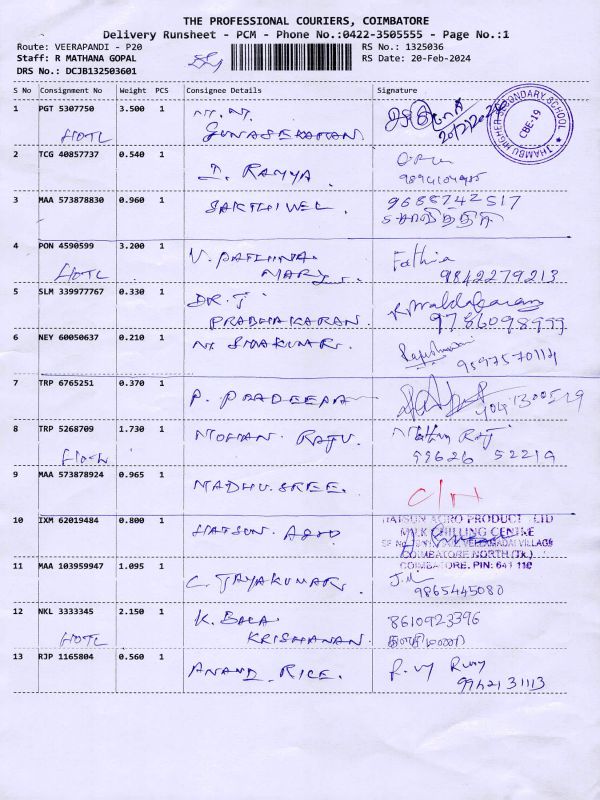 THE PROFESSIONAL COURIERS, COIMBATORE
Delivery Runsheet - PCM - Phone No.:0422-3505555 - Page No.:1
Route: VEERAPANDI - P20
RS No.: 1325036
Staff: R MATHANA GOPAL
RS Date: 20-Feb-2024
DRS No.: DCJB132503601
S No Consignment No Weight PCS Consignee Details Signature
1 PGT 5307750 3.500 1
HOTL GUNASEKARAN. 20/2/2024
THAMBU HIGHER SECONDARY SCHOOL
CBE-19
2 TCG 40857737 0.540 1
I. RAMYA
3 MAA 573878830 0.960 1 SAKTHIVEL. 9688742517
4 PON 4590599 3.200 1 V. PATHINA Fathia
HOTL MARY. 9842279213
5 SLM 339977767 0.330 1 DR. J.
PRABHAKARAN.
6 NEY 60050637 0.210 1 SIVAKUMAR.
7 TRP 6765251 0.370 1 P. PRADEEPA
8 TRP 5268709 1.730 1 MOHAN. RAJU. Raj
99626 52219
9 MAA 573878924 0.965 1 MADHU. SREE. C/N
10 IXM 62019484 0.800 1 HATSUN. AGRO
HATSUN AGRO PRODUCT LTD
MILK CHILLING CENTRE
VILLAGE
COIMBATORE NORTH (TK.)
COIMBATORE. PIN: 641 110
11 MAA 103959947 1.095 1 C. JAYAKUMAR.
9865445080
12 NKL 3333345 2.150 1 K. BALA 8610923396
HOTL KRISHANAN.
13 RJP 1165804 0.560 1 ANAND. RICE.
9942131113